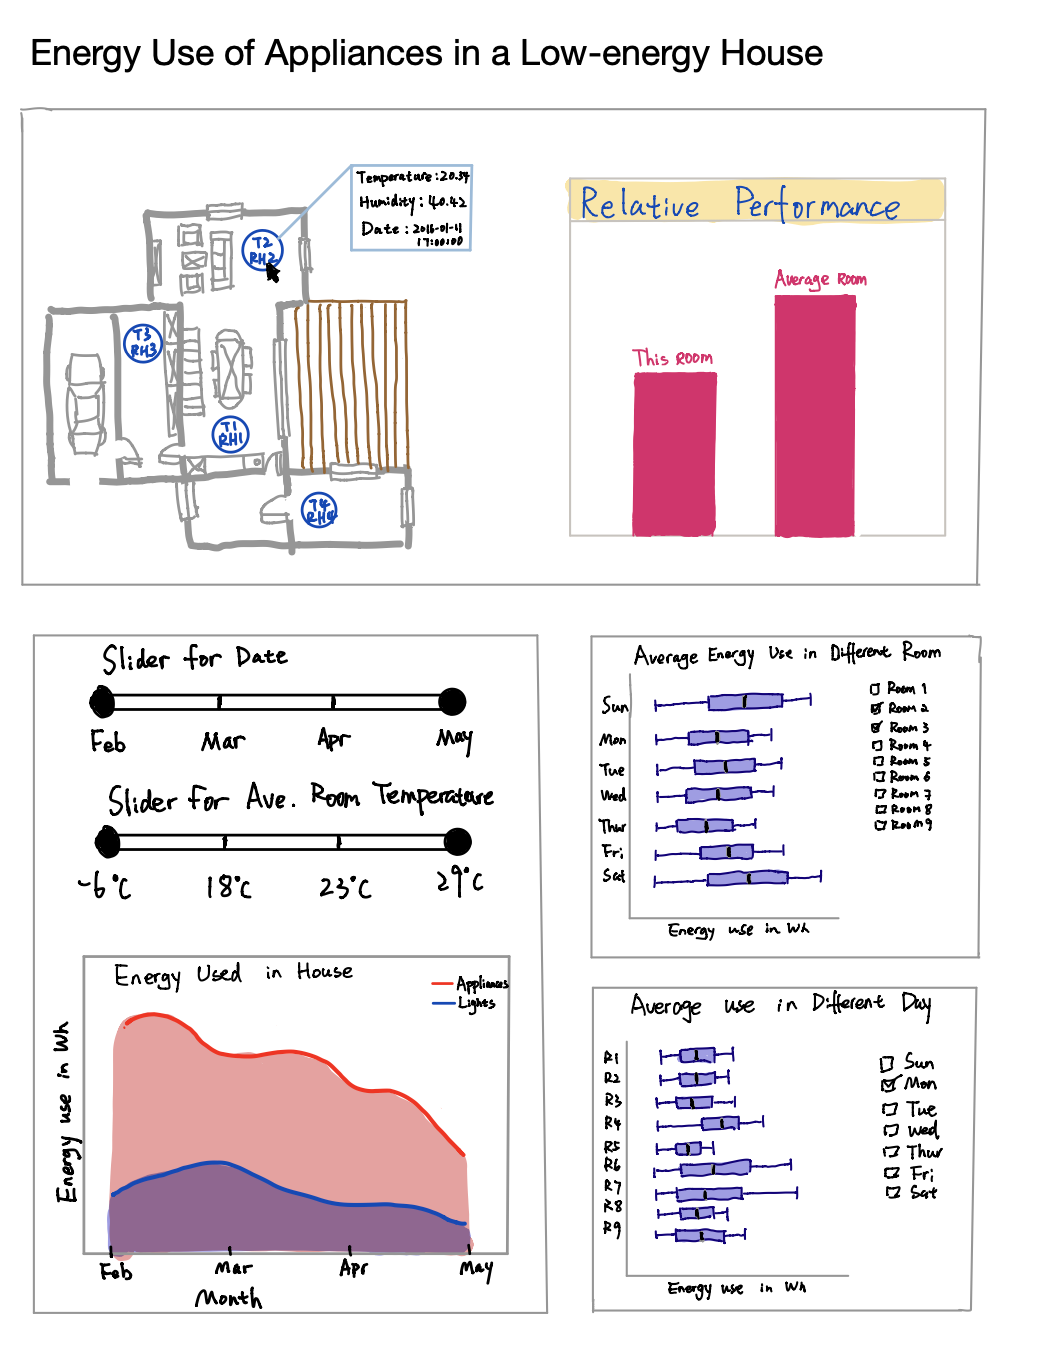 Energy Use of Appliances in a Low-energy House
Temperature: 20.34
Humidity: 40.42
Date: 2016-01-11
17:00:00
T2
RH2
T3
RH3
T1
RH1
T4
RH4
Relative Performance
Average Room
This Room
Slider for Date
Feb Mar Apr May
Slider for Ave. Room Temperature
-6°C 18°C 23°C 29°C
Energy Used in House
Appliances
Lights
Energy use in Wh
Feb Mar Apr May
Month
Average Energy Use in Different Room
Sun
Mon
Tue
Wed
Thur
Fri
Sat
Room 1
Room 2
Room 3
Room 4
Room 5
Room 6
Room 7
Room 8
Room 9
Energy use in Wh
Average use in Different Day
R1
R2
R3
R4
R5
R6
R7
R8
R9
Sun
Mon
Tue
Wed
Thur
Fri
Sat
Energy use in Wh